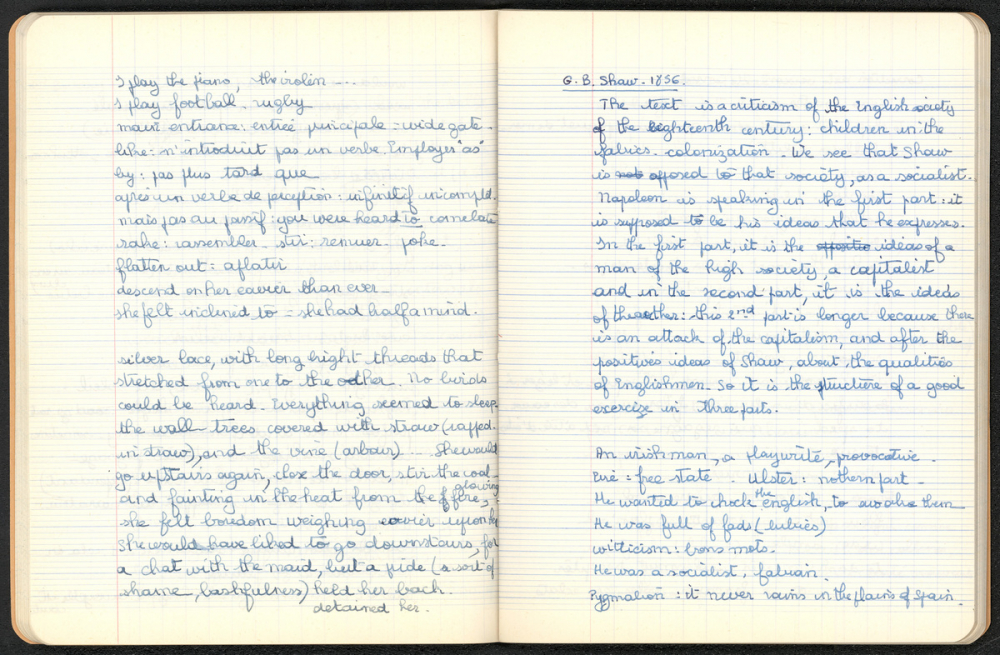 I play the piano, the violin ....
I play football, rugby
main entrance: entrée principale = wide gate.
like: n'introduit pas un verbe. Employer "as"
by: pas plus tard que
après un verbe de perception: infinitif incomplet.
mais pas au passif: you were heard to
rake: rassembler. stir: remuer. poke.
flatten out: aplatir
descend on her eavier than ever
she felt inclined to = she had half a mind.
silver lace, with long bright threads that
stretched from one to the other. No birds
could be heard. Everything seemed to sleep.
the wall trees covered with straw (rapped
in straw), and the vine (arbour) ... She would
go upstairs again, close the door, stir the coal
and fainting in the heat from the glowing fire,
she felt boredom weighing eavier upon her
She would have liked to go downstairs, for
a chat with the maid, but a pride (a sort of
shame, bashfulness) held her back.
detained her.
G. B. Shaw. 1856.
The text is a criticism of the English society
of the eighteenth century: children in the
fabrics. colonization. We see that Shaw
is opposed to that society, as a socialist.
Napoleon is speaking in the first part: it
is supposed to be his ideas that he expresses.
In the first part, it is the ideas of a
man of the high society, a capitalist
and in the second part, it is the ideas
of the other: this 2nd part is longer because there
is an attack of the capitalism, and after the
positives ideas of Shaw, about the qualities
of Englishmen. So it is the structure of a good
exercize in three parts.
An irish man, a playwrite, provocative.
Eire: free state. Ulster: nothern part.
He wanted to chock the english, to awake them
He was full of fads (lubies)
witticism: bons mots.
He was a socialist, fabian.
Pygmalion: it never rains in the plains of Spain.